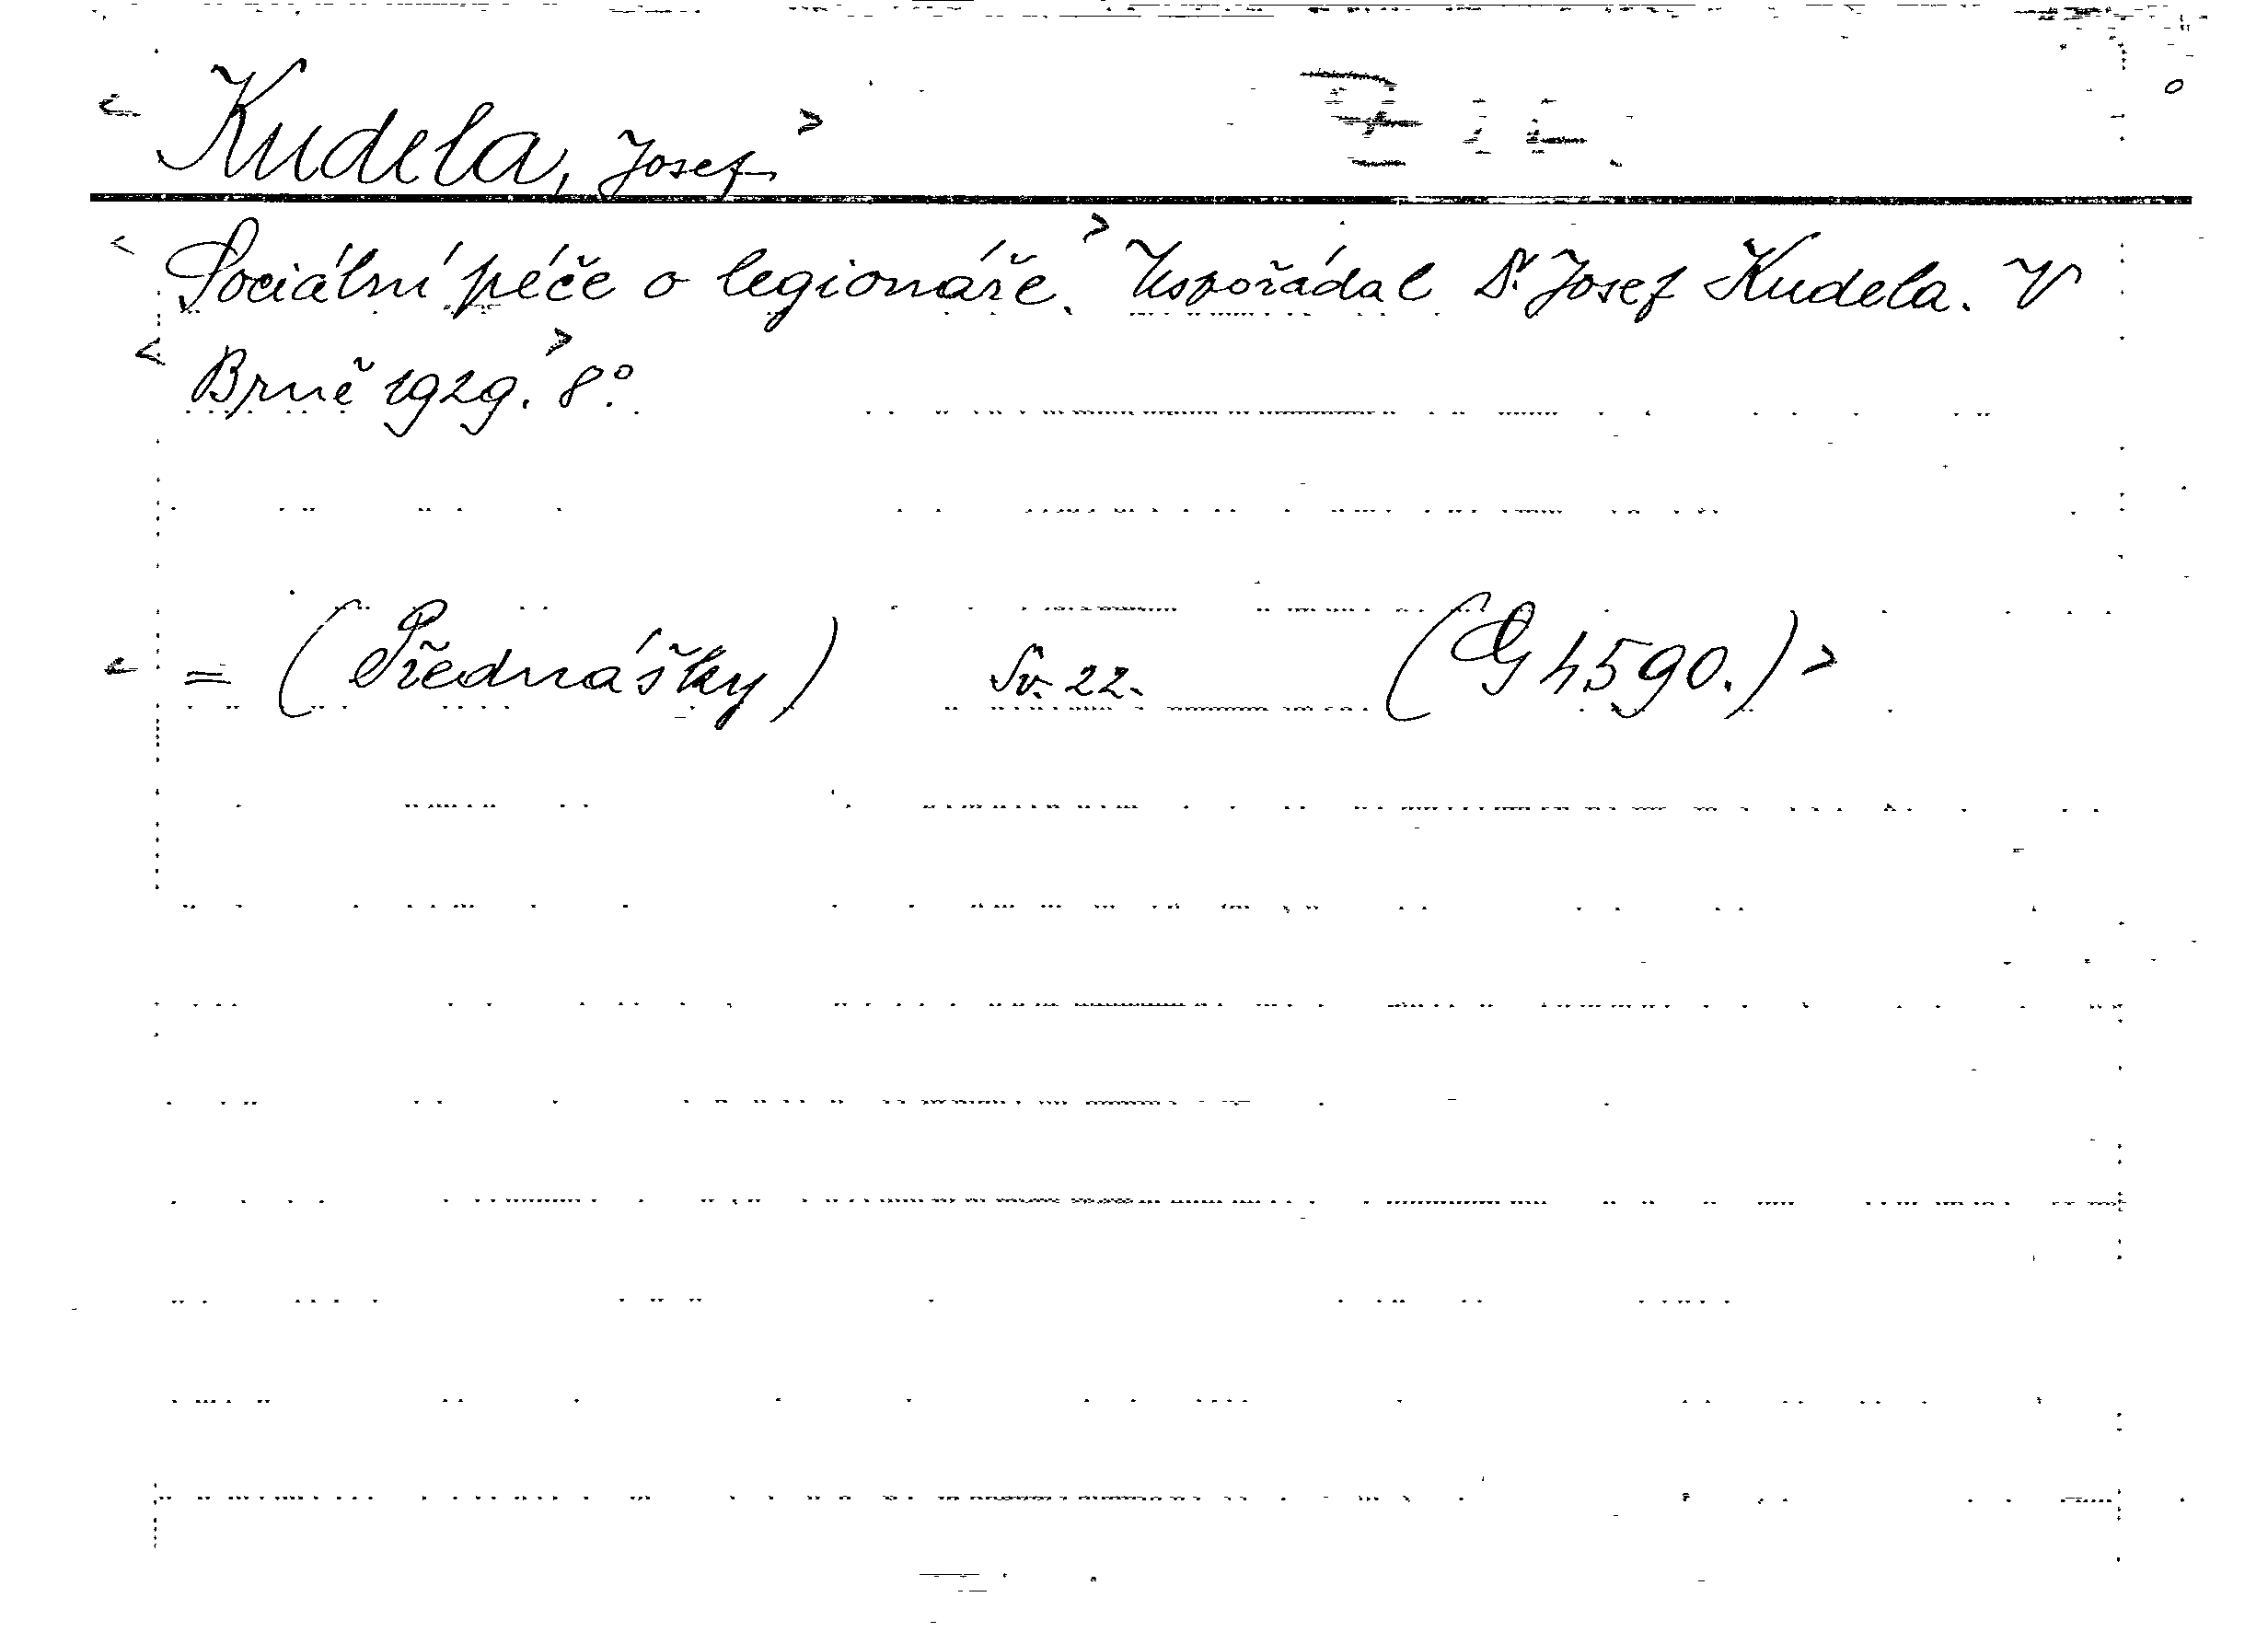 < Kudela, Josef >
< Sociální péče o legionáře. > Uspořádal Dr. Josef Kudela. V
< Brně 1929. > 8°.
< = (Přednášky) Sv. 22. (G 4590.) >